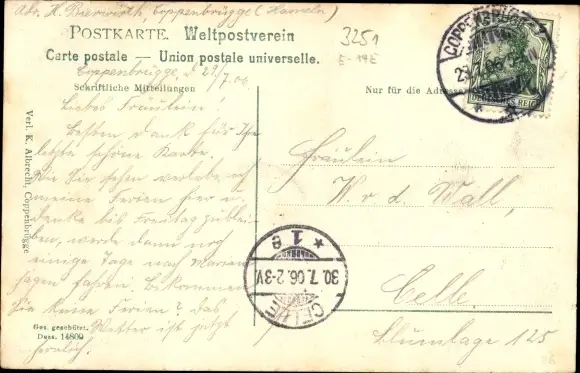 Abs. H. Bierwirth, Coppenbrügge (Hameln)
POSTKARTE. Weltpostverein
Carte postale — Union postale universelle.
3251
E-14E
Coppenbrügge, d 29/7.06.
Schriftliche Mitteilungen
Nur für die Adresse
Liebes Fräulein!
Besten Dank für Ihre
letzte schöne Karte.
Wie Sie sehen verlebe ich
meine Ferien hier u.
denke bis Freitag zu blei-
ben, werde dann noch
einige Tage nach
fahren. Bekommen
Sie keine Ferien? Das
Wetter ist jetzt
herrlich.
Fräulein
W. v. d. Wall,
Celle,
Blumlage 125
Verl. K. Albrecht, Coppenbrügge
Ges. geschützt.
Dess. 14809
COPPENBRÜGGE
29.7.06
DEUTSCHES REICH
CELLE
30.7.06.2-3V
* 1 e